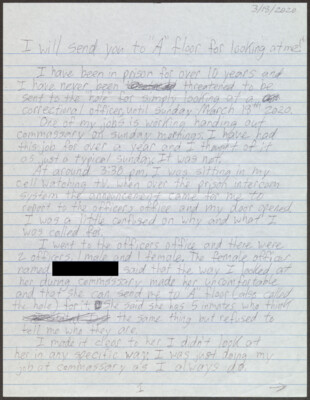 3/19/2020
I will send you to "A" floor for looking at me!
I have been in prison for over 10 years and
I have never been threatened to be
sent to the hole for simply looking at a
correctional officer, until Sunday March 15th 2020.
One of my jobs is working handing out
commissary on Sunday mornings. I have had
this job for over a year and I thought of it
as just a typical Sunday. It was not.
At around 3:30 pm, I was sitting in my
cell watching tv. when over the prison intercom
system the announcement came for me to
report to the officers office and my door opened.
I was a little confused on why and what I
was called for.
I went to the officers office and there were
2 officers, 1 male and 1 female. The female officer
named said that the way I looked at
her during commissary made her uncomfortable
and that she could send me to A floor (also called
the hole) for it. She said she has 5 inmates who think
the same thing but refused to
tell me who they are.
I made it clear to her I didn't look at
her in any specific way, I was just doing my
job at commissary as I always do.
1
→